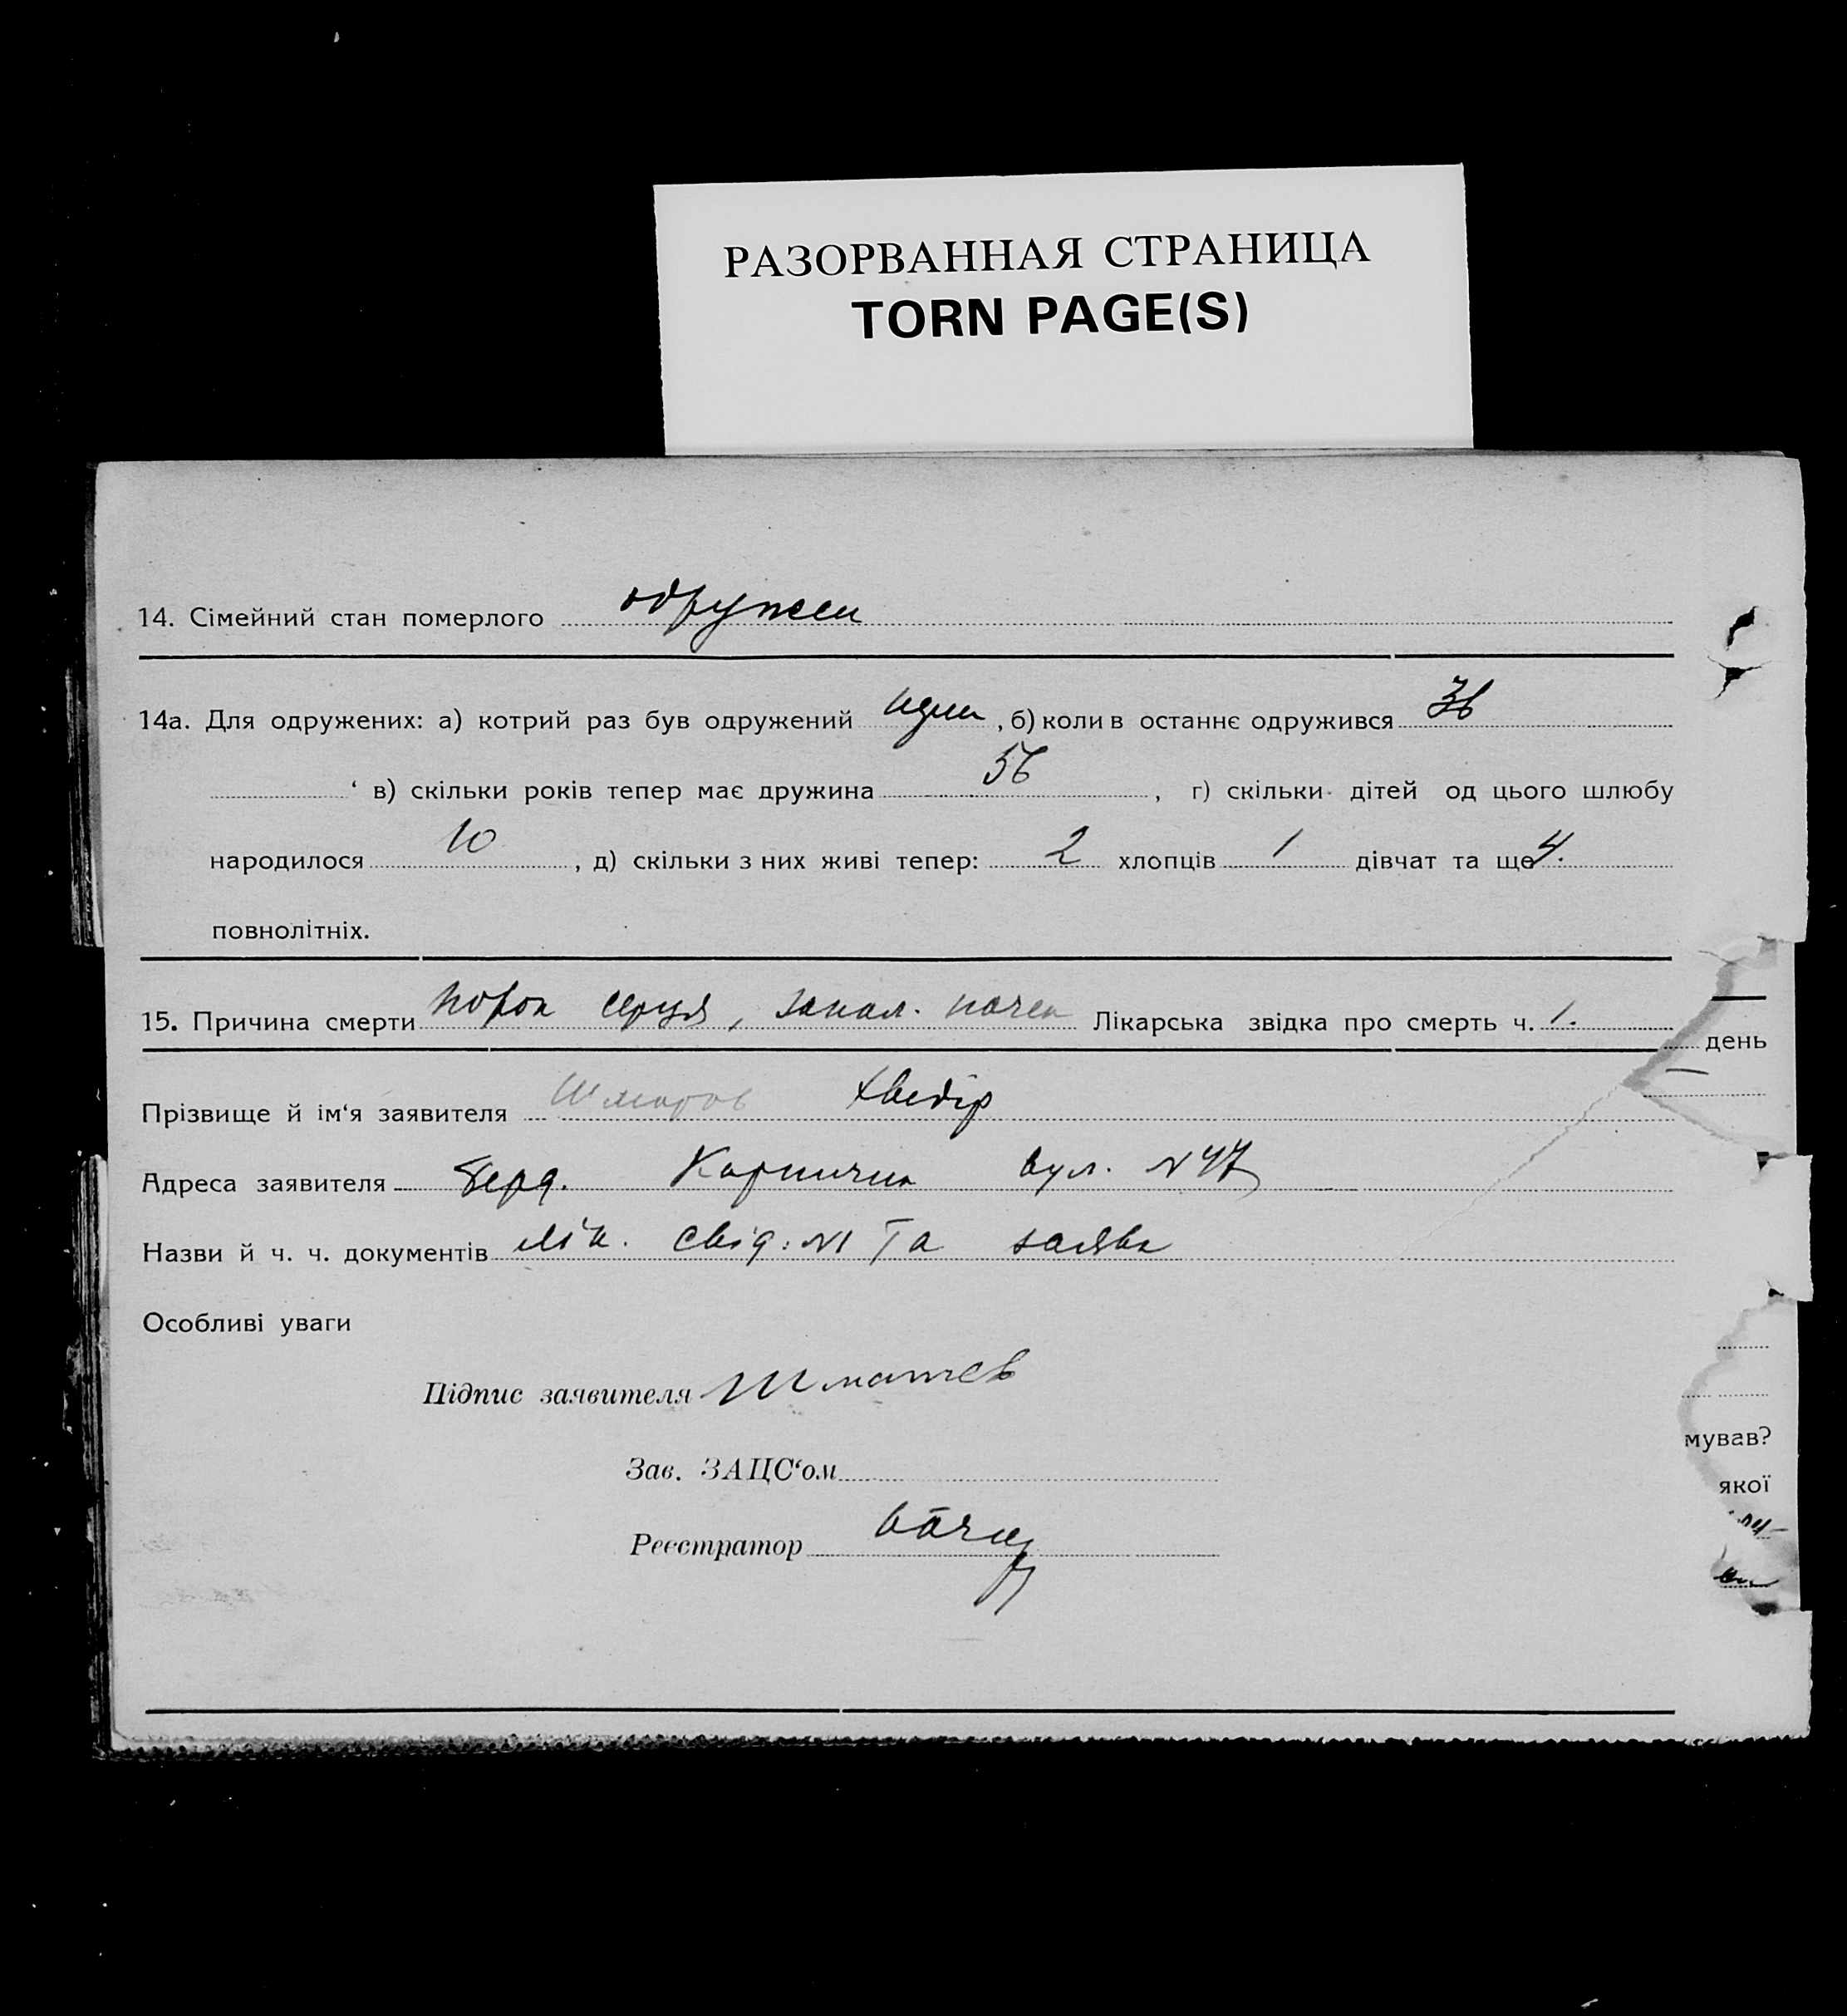 РАЗОРВАННАЯ СТРАНИЦА
TORN PAGE(S)
14. Сімейний стан померлого одружен
14а. Для одружених: а) котрий раз був одружений один, б) коли в останнє одружився 36
‘ в) скільки років тепер має дружина 56, г) скільки дітей од цього шлюбу
народилося 10, д) скільки з них живі тепер: 2 хлопців 1 дівчат та ще 4.
повнолітніх.
15. Причина смерти порок серця, запал. почек Лікарська звідка про смерть ч. 1.
день
Прізвище й ім‘я заявителя Хведір
Адреса заявителя Берд. вул. N 47
Назви й ч. ч. документів лік. свід: N1 та заява
Особливі уваги
Підпис заявителя
мував?
Зав. ЗАЦС‘ом
якої
Реєстратор